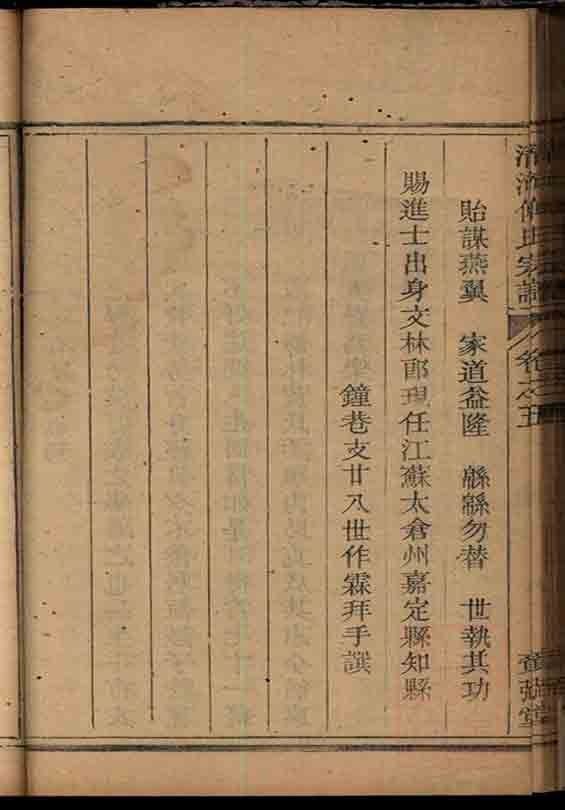 家譜 卷之五 堂
貽謀燕翼 家道益隆 緜緜勿替 世執其功
賜進士出身文林郎現任江蘇太倉州嘉定縣知縣
鐘巷支廿八世作霖拜手譔